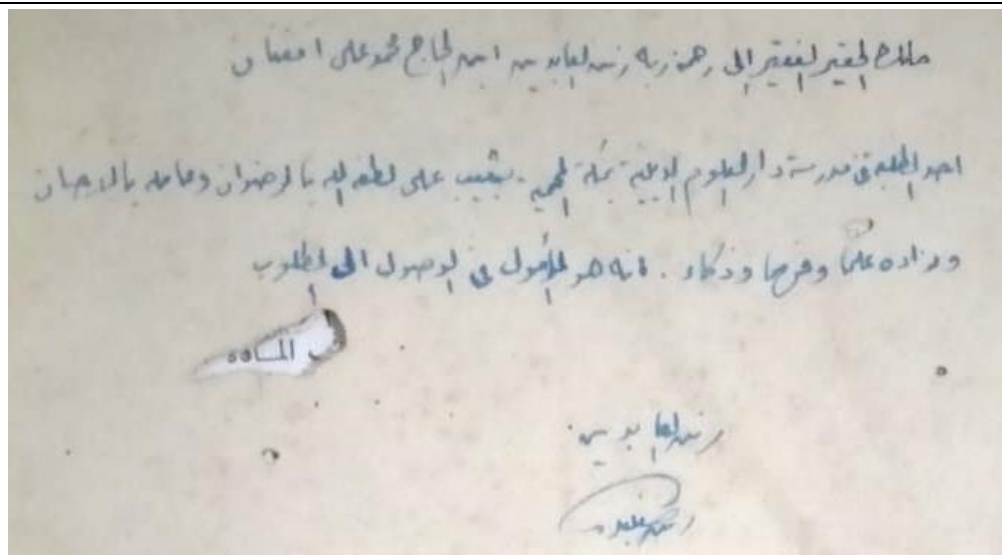 ملك الحقير الفقير إلى رحمة ربه زين العابدين ابن الحاج محمد على امفنان
احد الطلبة في مدرسة دار العلوم الدينية بمكة المحمية. بشعب على لطفه الله بالرضوان وعامله بالاحسان
وزاده علمًا وفهما وذكاء. فانه هو المأمول في الوصول الى المطلوب
المـادة
زين العابدين